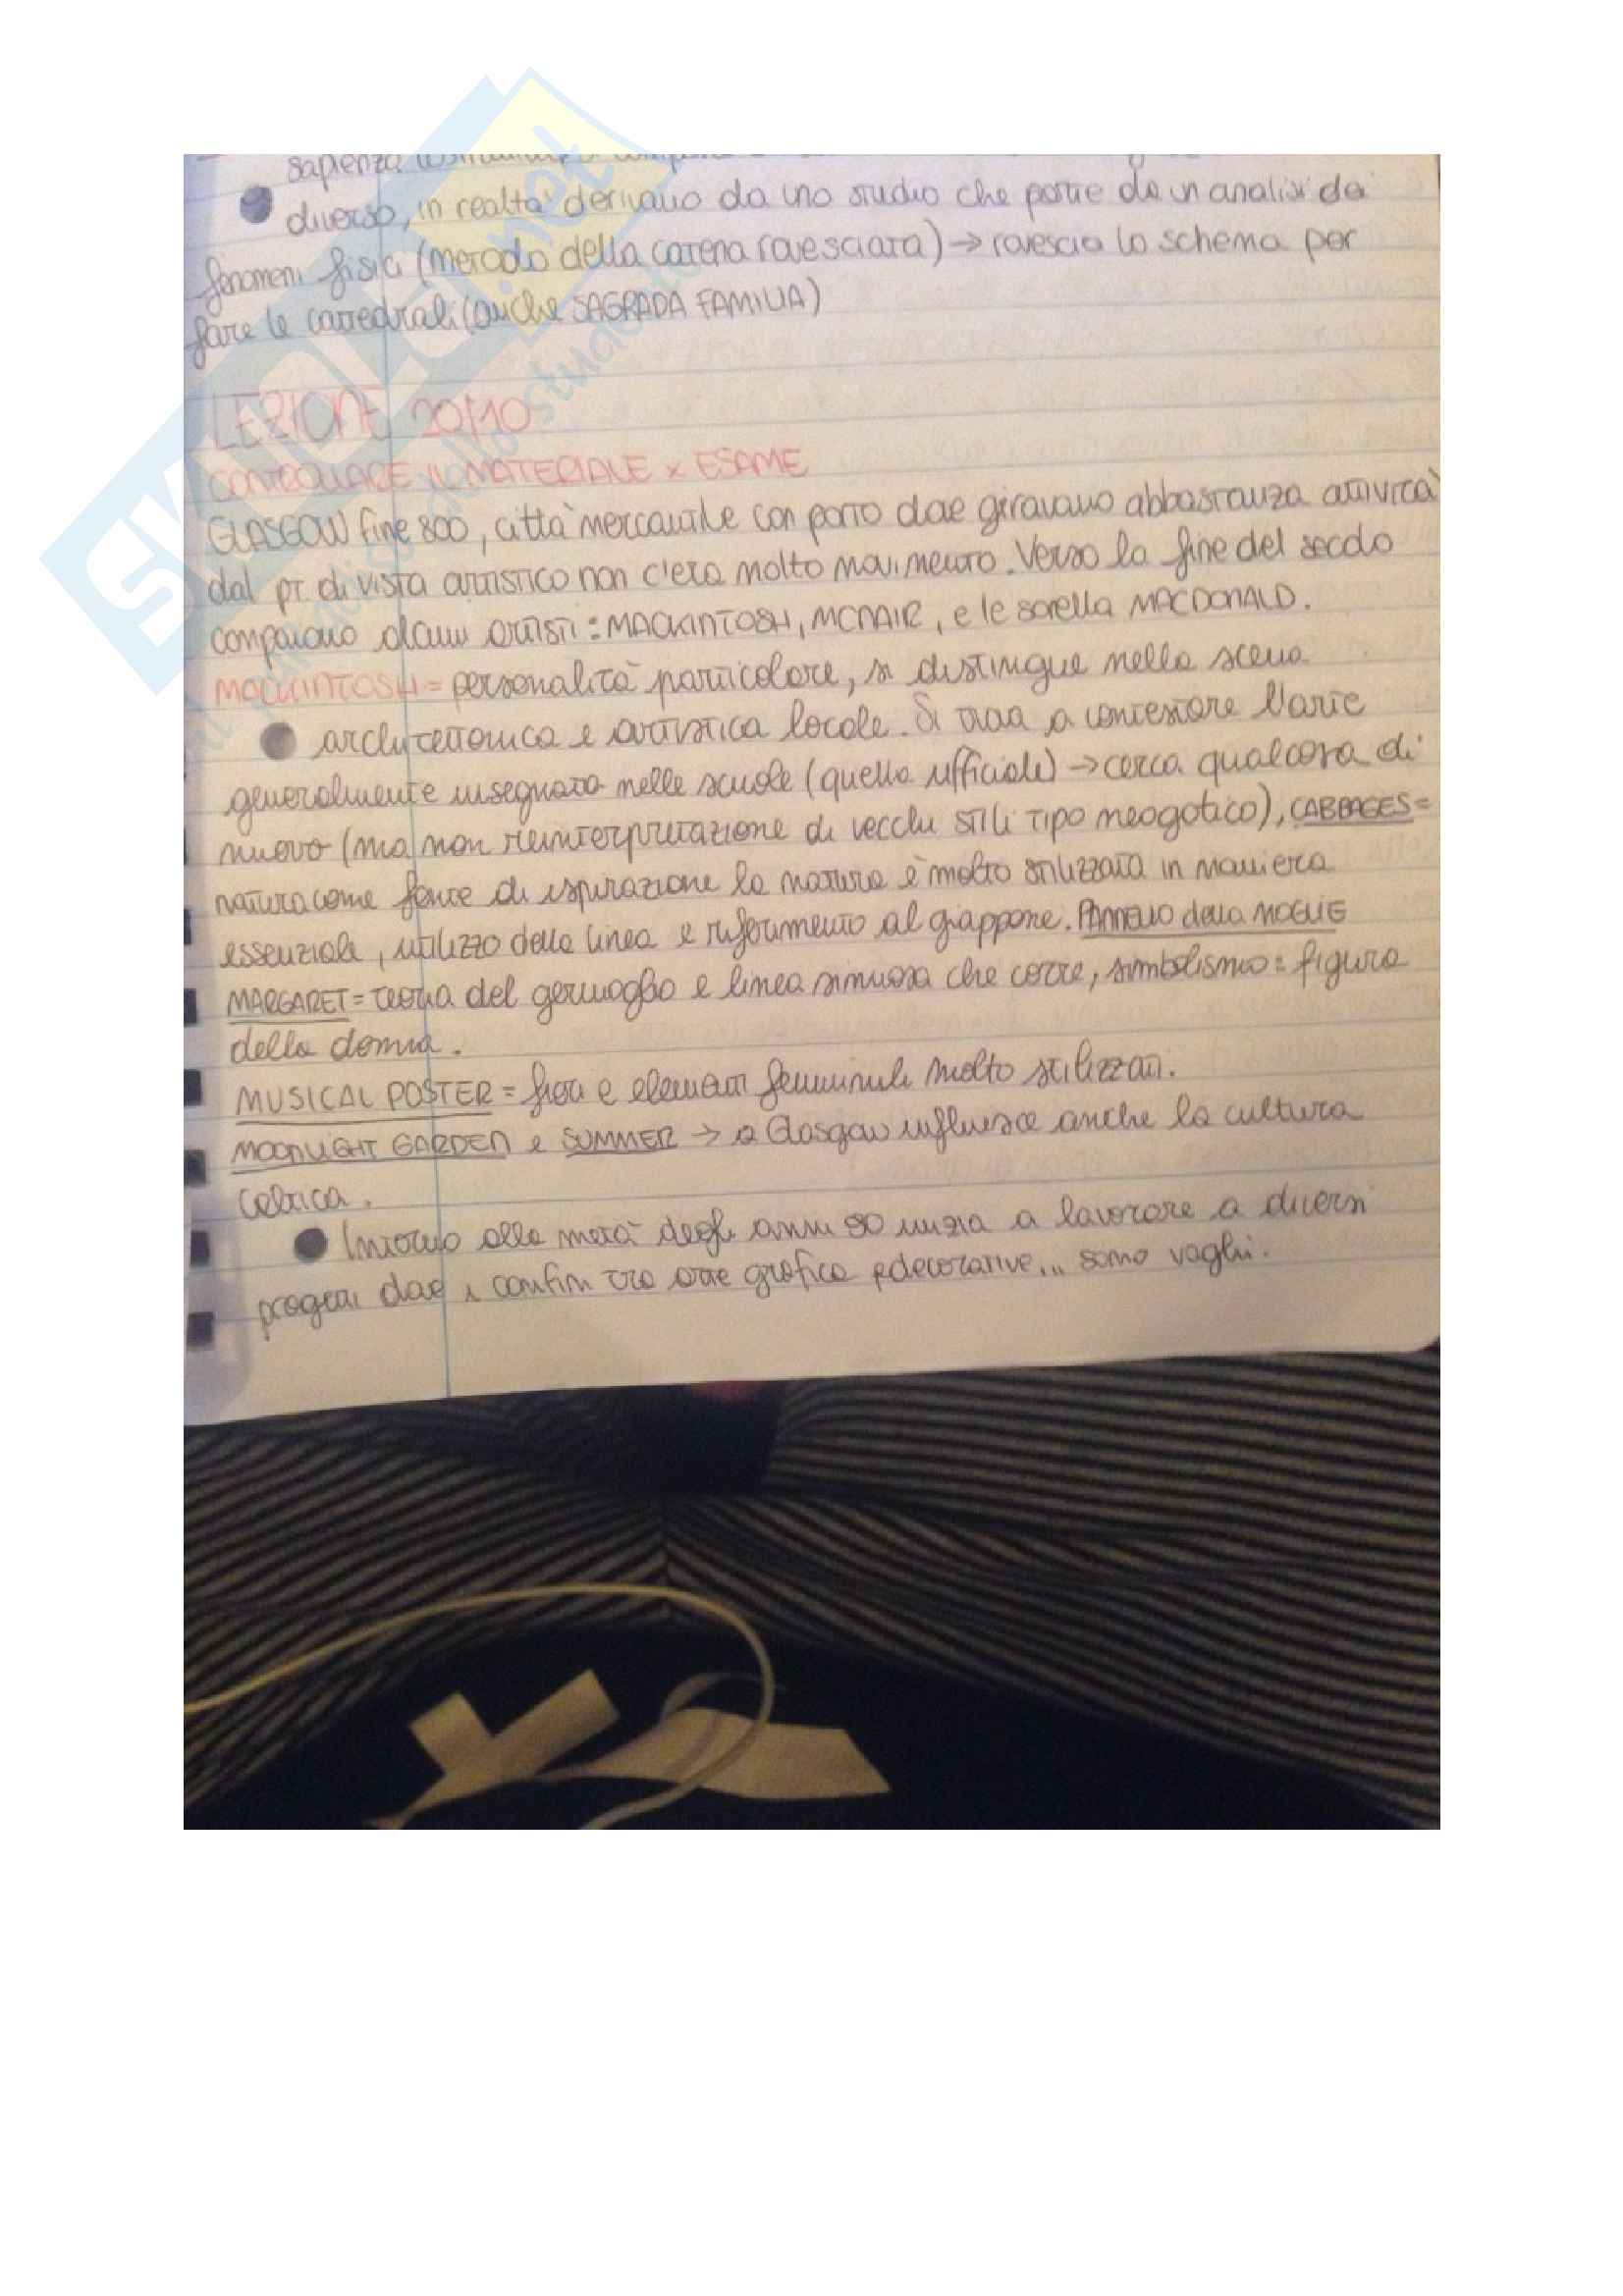 sapienza
diverso, in realtà derivano da uno studio che parte da un analisi dei
fenomeni fisici (metodo della catena rovesciata) → rovescia lo schema per
fare le cattedrali (anche SAGRADA FAMILIA)
LEZIONE 20/10
CONTROLLARE IL MATERIALE x ESAME
GLASGOW fine 800, città mercantile con porto dove giravano abbastanza attività
dal pt. di vista artistico non c'era molto movimento. Verso la fine del secolo
compaiono alcuni artisti: MACKINTOSH, MCNAIR, e le sorella MACDONALD.
MACKINTOSH = personalità particolare, si distingue nella scena
architettonica e artistica locale. Si trova a contestare l'arte
generalmente insegnata nelle scuole (quella ufficiale) → cerca qualcosa di
nuovo (ma non reinterpretazione di vecchi stili tipo neogotico), CABBAGES =
natura come fonte di ispirazione la natura è molto stilizzata in maniera
essenziale, utilizzo della linea e riferimento al giappone. PANNELLO della MOGLIE
MARGARET = teoria del germoglio e linea sinuosa che corre, simbolismo = figura
della donna.
MUSICAL POSTER = fiori e elementi femminili molto stilizzati.
MOONLIGHT GARDEN e SUMMER → a Glasgow influisce anche la cultura
celtica.
Intorno alla metà degli anni 90 inizia a lavorare a diversi
progetti dove i confini tra arte grafica e decorative... sono vaghi.
SKUOLA.net